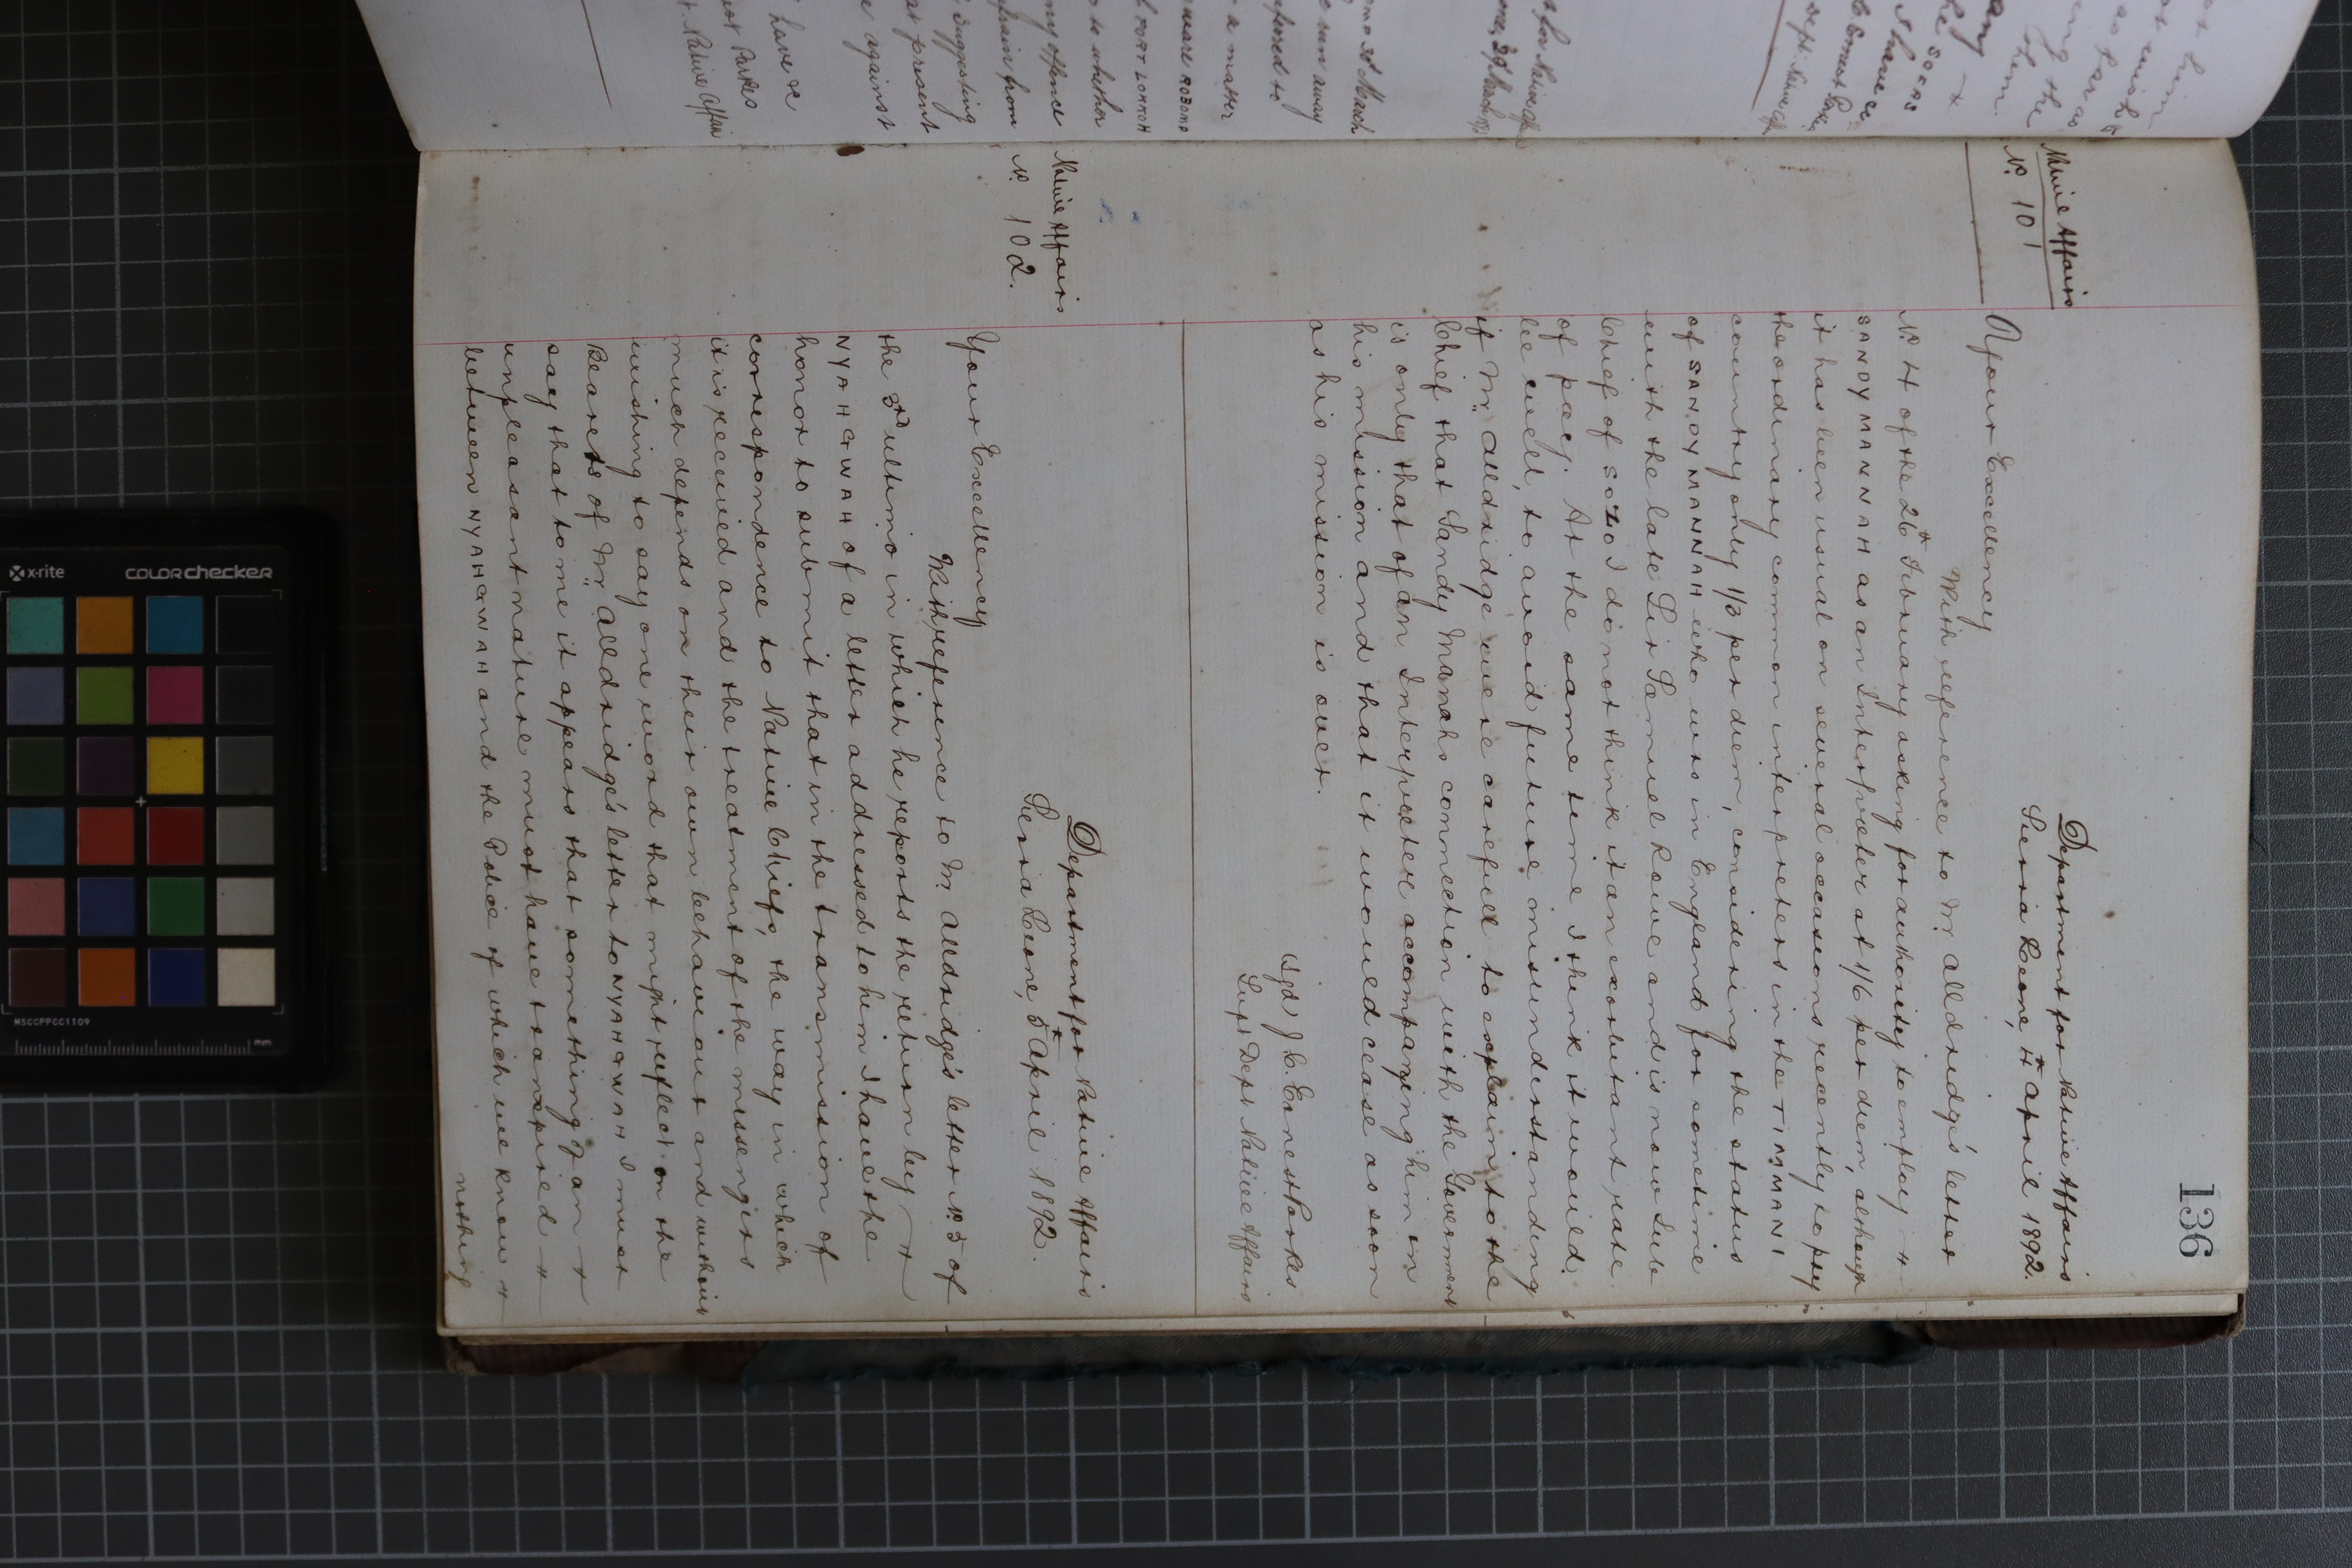 136
Native Affairs
No. 101
Department for Native Affairs
Sierra Leone, 4th April 1892.
Your Excellency
With reference to Mr. Alldridge's letter
No. 4 of the 26th February asking for authority to employ
SANDY MANNAH as an Interpreter at 1/6 per diem, although
it has been usual on several occasions recently to pay
the ordinary common interpreters in the TIMMANI
country only 1/3 per diem, considering the status
of SANDY MANNAH who was in England for sometime
with the late Sir Samuel Rowe and is now Sub
Chief of SOZO I do not think it an exorbitant rate
of pay. At the same time I think it would
be well, to avoid future misunderstanding
if Mr. Alldridge were careful to explain to the
Chief that Sandy Manahs connection with the Government
is only that of an Interpreter accompanying him in
his mission and that it would cease as soon
as his mission is over.
Sgd J. C. Ernest Parkes
Supt Dept Native Affairs
Native Affairs
No. 102.
Department for Native Affairs
Sierra Leone, 5th April 1892.
Your Excellency
With reference to Mr. Alldridge's letter No. 5 of
the 3rd ultimo in which he reports the return by
NYAHGWAH of a letter addressed to him I have the
honor to submit that in the transmission of
correspondence to Native Chiefs, the way in which
it is received and the treatment of the messengers
much depends on their own behaviour and without
wishing to say one word that might reflect on the
Bearers of Mr. Alldridge's letter to NYAHGWAH I must
say that to me it appears that something of an
unpleasant nature must have transpired
between NYAHGWAH and the Police of which we know
nothing
x-rite
colorchecker
MSCCPPCC1109
mm